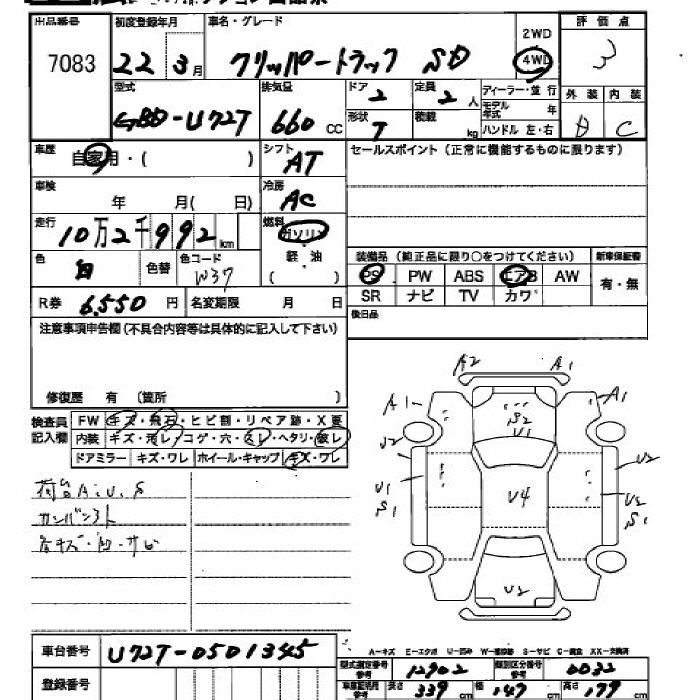 出品番号 初度登録年月 車名・グレード 2WD 評価点
7083 22 3月 クリッパートラック SD 4WD 3
型式 排気量 ドア 定員 ディーラー・並行 外装 内装
GBD-U72T 660 CC 2 2人 モデル年式 年
形状 積載 kg ハンドル 左・右 C
T
車歴 自家用・( ) シフト AT セールスポイント(正常に機能するものに限ります)
車検 年 月( 日) 冷房 AC
走行 10万2千992km 燃料 ガソリン
軽油
( )
色 白 色替 色コード W37
装備品(純正品に限り○をつけてください) 新車保証書
PS PW ABS エアB AW 有・無
SR ナビ TV カワ
R券 6,550円 名変期限 月 日 後日品
注意事項申告欄(不具合内容等は具体的に記入して下さい)
修復歴 有 (箇所 )
検査員記入欄 FW キズ・飛石・ヒビ割・リペア跡・X要
内装 キズ・汚レ・コゲ・穴・スレ・ヘタリ・破レ
ドアミラー キズ・ワレ ホイール・キャップ キズ・ワレ
荷台A.U.S
カンバン跡
各キズ・凹・サビ
A2 A1
A1 A1
S2
U1
U2 U2
U1 U4 U2
S1 S1
U2
A-キズ E-エクボ U-凹み W-補修跡 S-サビ C-腐食 XX-交換済
車台番号 U72T-0501345
型式指定番号 12902 類別区分番号 0032
登録番号
車庫証明用参考 長さ 339 cm 幅 147 cm 高さ 179 cm